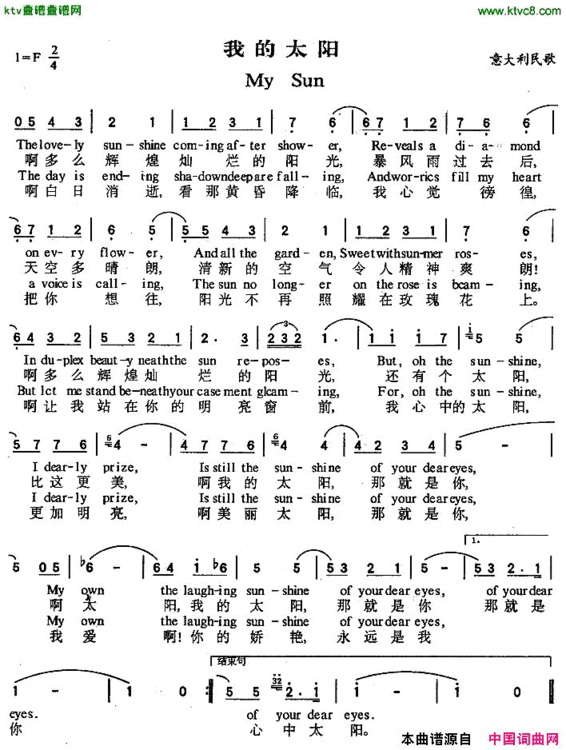 ktv查谱查谱网
www.ktvc8.com
我的太阳
1=F 2/4
意大利民歌
My Sun
05 43 | 2 1 | 1 2 3 1 | 7 6 | 6 7 1 2 | 7 6 6 |
The love-ly sun-shine com-ing af-ter show-er, Re-veals a di-a-mond
啊多么辉煌灿烂的阳光,暴风雨过去后,
The day is end-ing sha-downdeepare fall-ing, Andwor-rics fill my heart
啊白日消逝,看那黄昏降临,我心觉徬徨,
6 7 1 2 | 6 5 | 5 5 4 3 | 2 1 | 1 2 3 1 | 7 6 |
on ev-ry flow-er, And all the gar-den, Sweetwithsun-mer ros-es,
天空多晴朗,清新的空气令人精神爽朗!
a voice is call-ing, The sun no long-er on the rose is bcam-ing,
把你想往,阳光不再照耀在玫瑰花上。
6 4 3 2 | 5 3 2 1 | 2. 3 | 2 3 2 | 1. | 1 1 1 7 | 5 5 |
In du-plex beaut-y neaththe sun re-pos-es, But, oh the sun-shine,
啊多么辉煌灿烂的阳光,还有个太阳,
But lct me stand be-neathyour case ment glcam-ing, For, oh the sun-shine,
啊让我站在你的明亮窗前,我心中的太阳,
5 7 7 6 | 4 - | 4. 0 | 4 7 7 6 | 4 4 | 4 2 3 4 | 5 - |
I dear-ly prize, Is still the sun-shine of your deareyes,
比这更美,啊我的太阳,那就是你,
I dear-ly prize, Is still the sun-shine of your deareyes,
更加明亮,啊美丽太阳,那就是你,
5 0 5 | b6 - | 6 4 i b6 | 5 5 | 5 3 2 1 | 5 3 2. 1 |
1.
My own the laugh-ing sun-shine of yourdear eyes, of yourdear
啊太阳,我的太阳,那就是你 那就是
My own the laugh-ing sun-shine of yourdear eyes,
我爱啊!你的娇艳,永远是我
结束句
1 - | 1 0 :| 5 5 2. 1 | 1 - | 1 0 |
eyes. of your dear eyes.
你 心中太阳。
本曲谱源自 中国词曲网